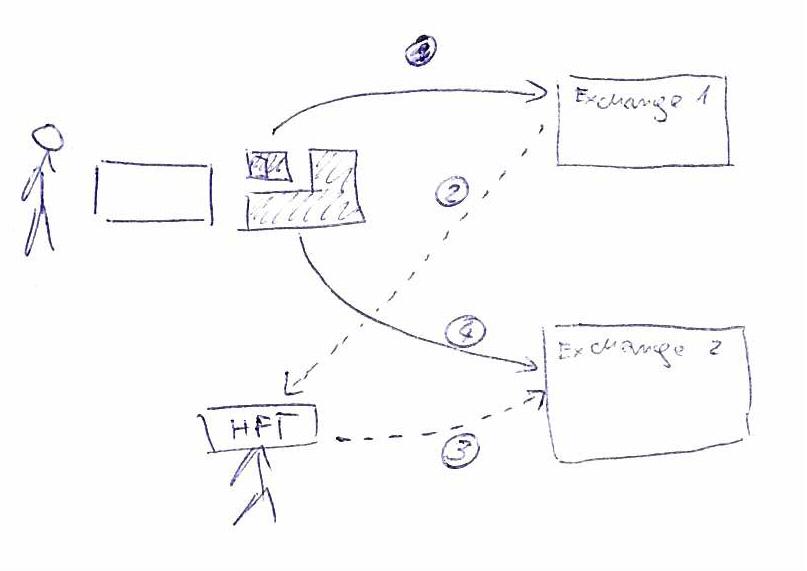 Exchange 1
2
4
Exchange 2
HFT
3